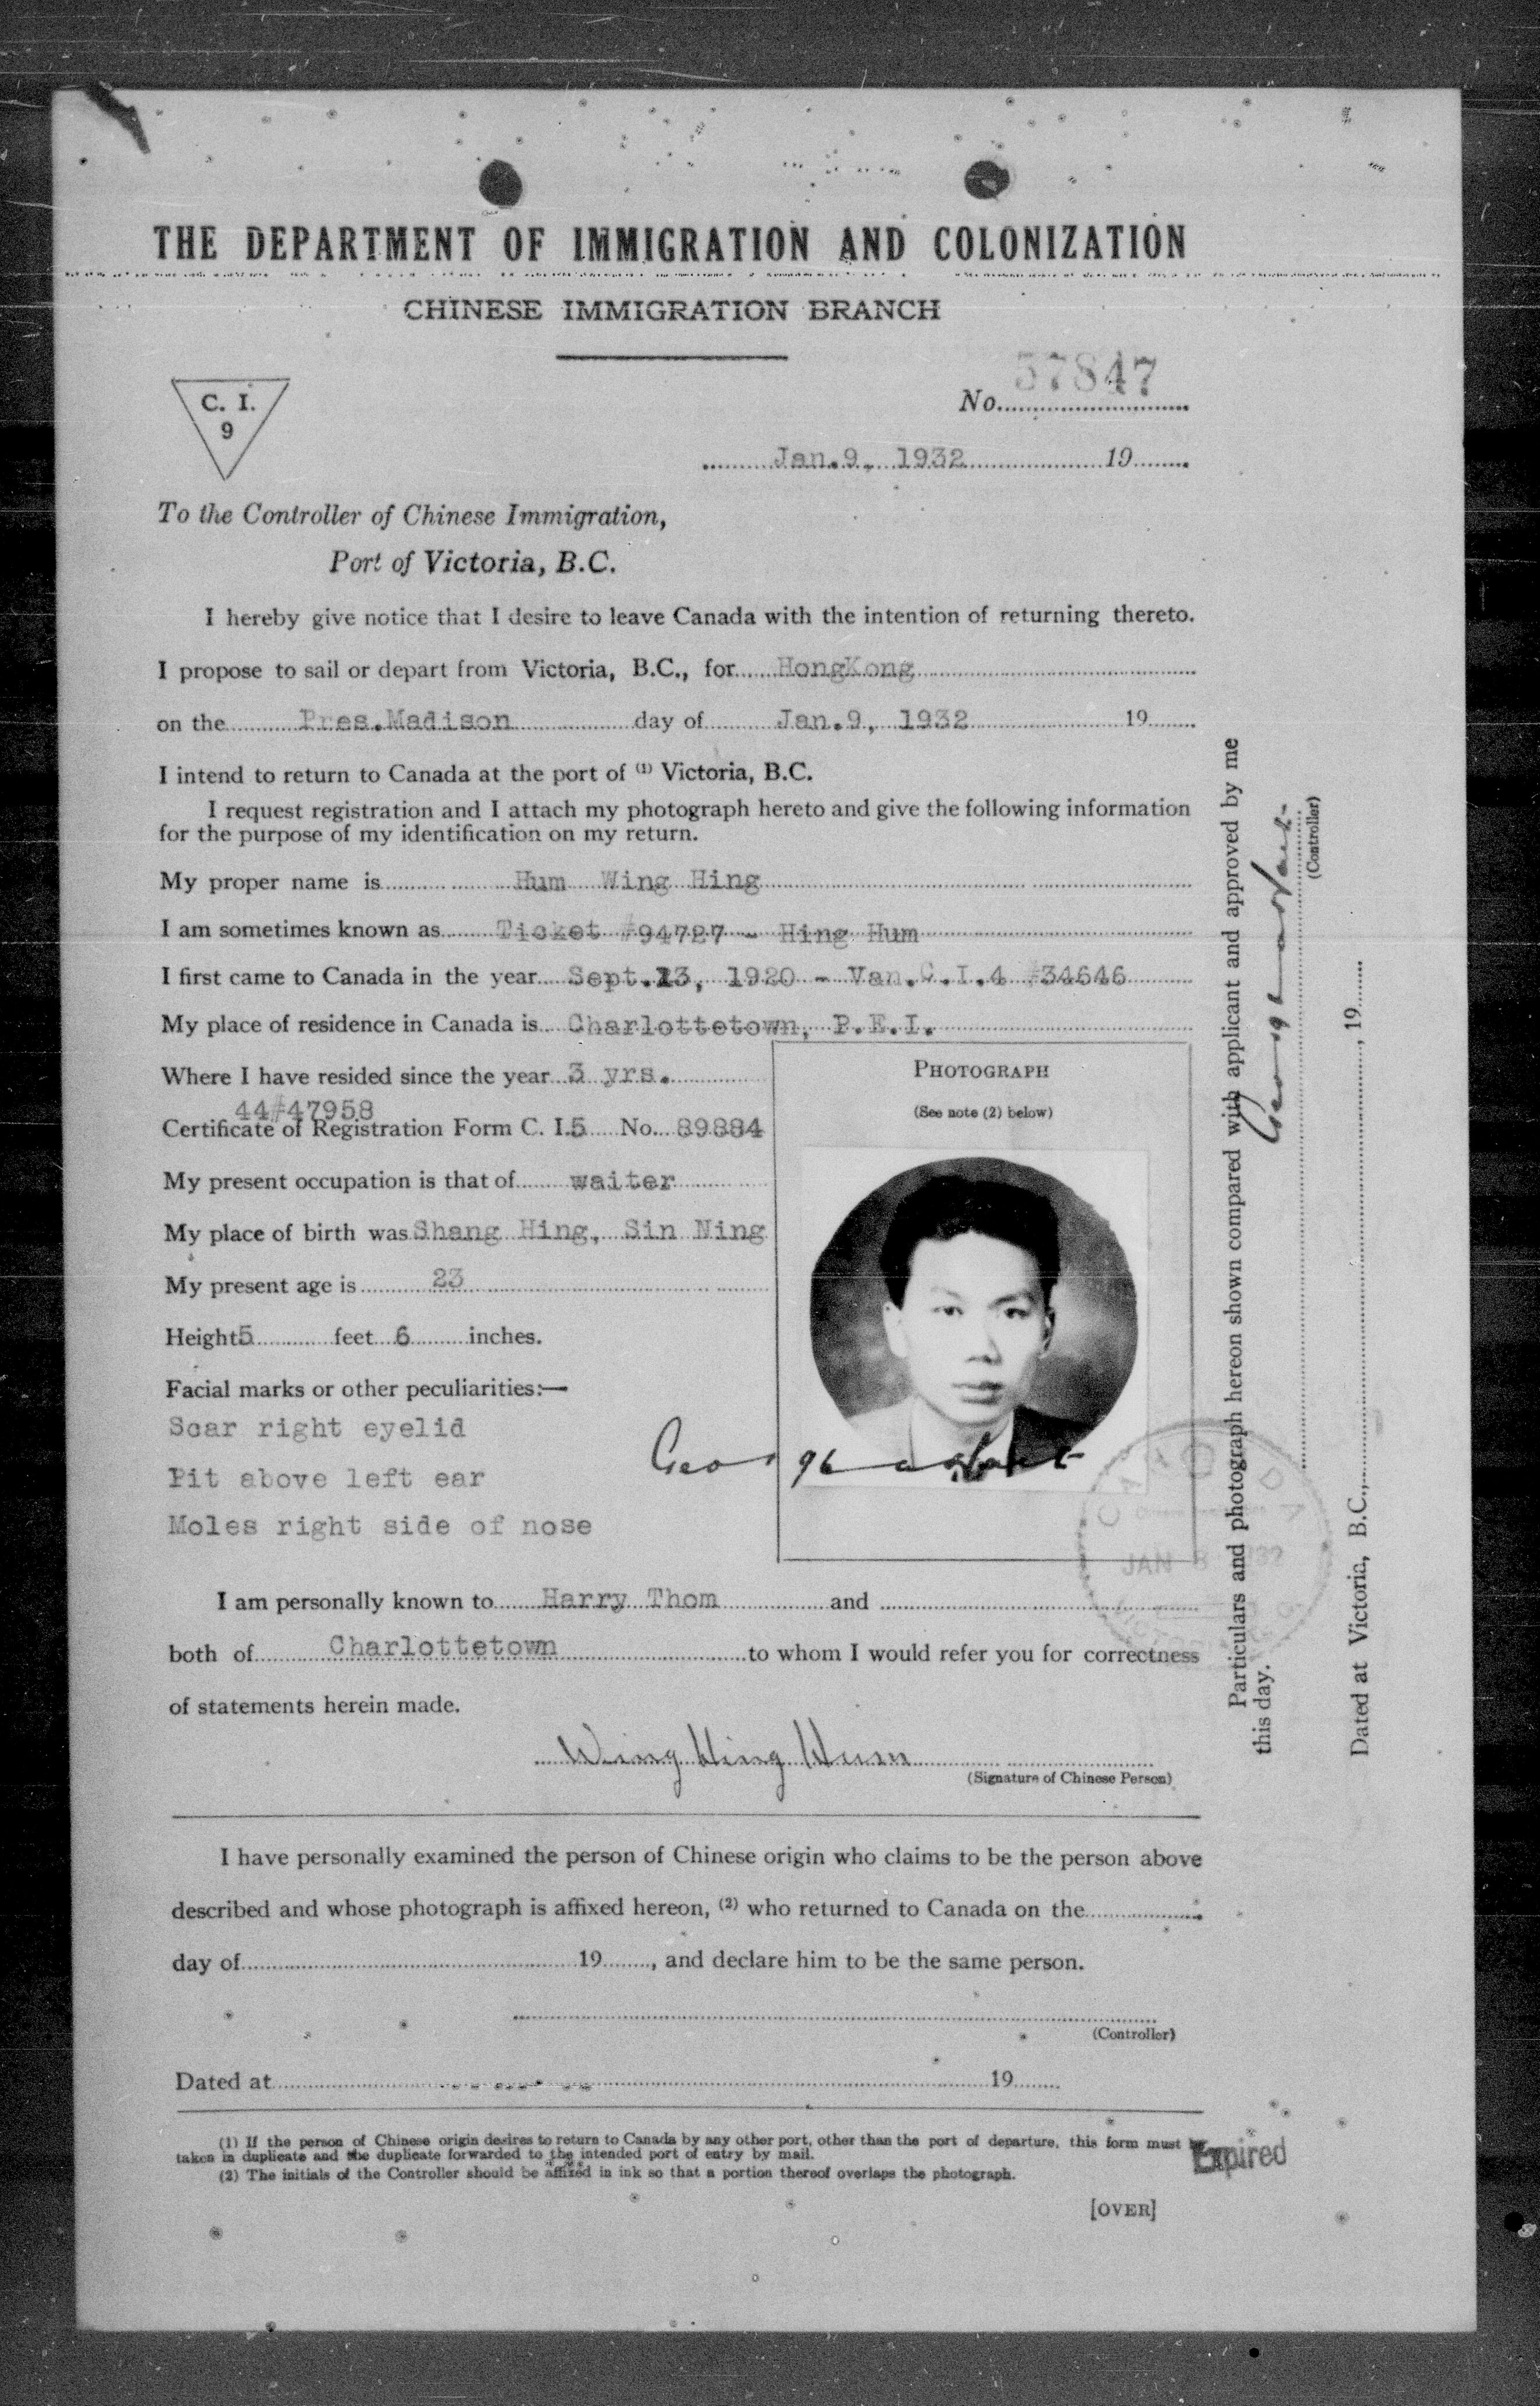 THE DEPARTMENT OF IMMIGRATION AND COLONIZATION
CHINESE IMMIGRATION BRANCH
C. I.
9
No. 57847
Jan.9, 1932 19
To the Controller of Chinese Immigration,
Port of Victoria, B.C.
I hereby give notice that I desire to leave Canada with the intention of returning thereto.
I propose to sail or depart from Victoria, B.C., for HongKong
on the Pres.Madison day of Jan.9, 1932 19
I intend to return to Canada at the port of (1) Victoria, B.C.
I request registration and I attach my photograph hereto and give the following information
for the purpose of my identification on my return.
My proper name is Hum Wing Hing
I am sometimes known as Ticket #94727 - Hing Hum
I first came to Canada in the year Sept.13, 1920 - Van.C.I.4 #34646
My place of residence in Canada is Charlottetown, P.E.I.
Where I have resided since the year 3 yrs.
44#47958
Certificate of Registration Form C. I.5 No. 89884
My present occupation is that of waiter
My place of birth was Shang Hing, Sin Ning
My present age is 23
Height 5 feet 6 inches.
Facial marks or other peculiarities:—
Scar right eyelid
Pit above left ear
Moles right side of nose
PHOTOGRAPH
(See note (2) below)
CANADA
JAN 1932
I am personally known to Harry Thom and
both of Charlottetown to whom I would refer you for correctness
of statements herein made.
Wing Hing Hum
(Signature of Chinese Person)
I have personally examined the person of Chinese origin who claims to be the person above
described and whose photograph is affixed hereon, (2) who returned to Canada on the
day of 19, and declare him to be the same person.
(Controller)
Dated at 19
(1) If the person of Chinese origin desires to return to Canada by any other port, other than the port of departure, this form must be
taken in duplicate and the duplicate forwarded to the intended port of entry by mail.
(2) The initials of the Controller should be affixed in ink so that a portion thereof overlaps the photograph.
Expired
[OVER]
Particulars and photograph hereon shown compared with applicant and approved by me
this day.
(Controller)
Dated at Victoria, B.C., , 19